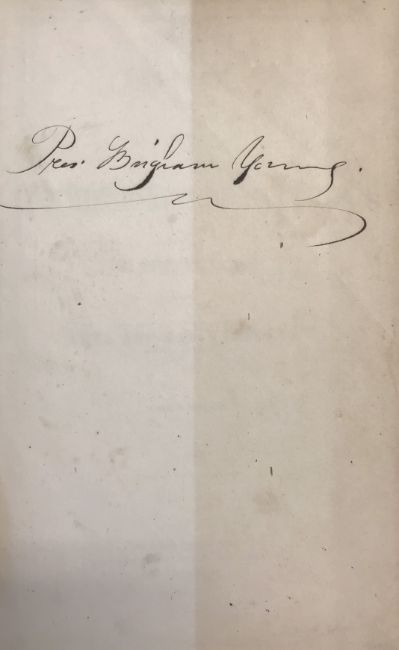 Pres. Brigham Young.